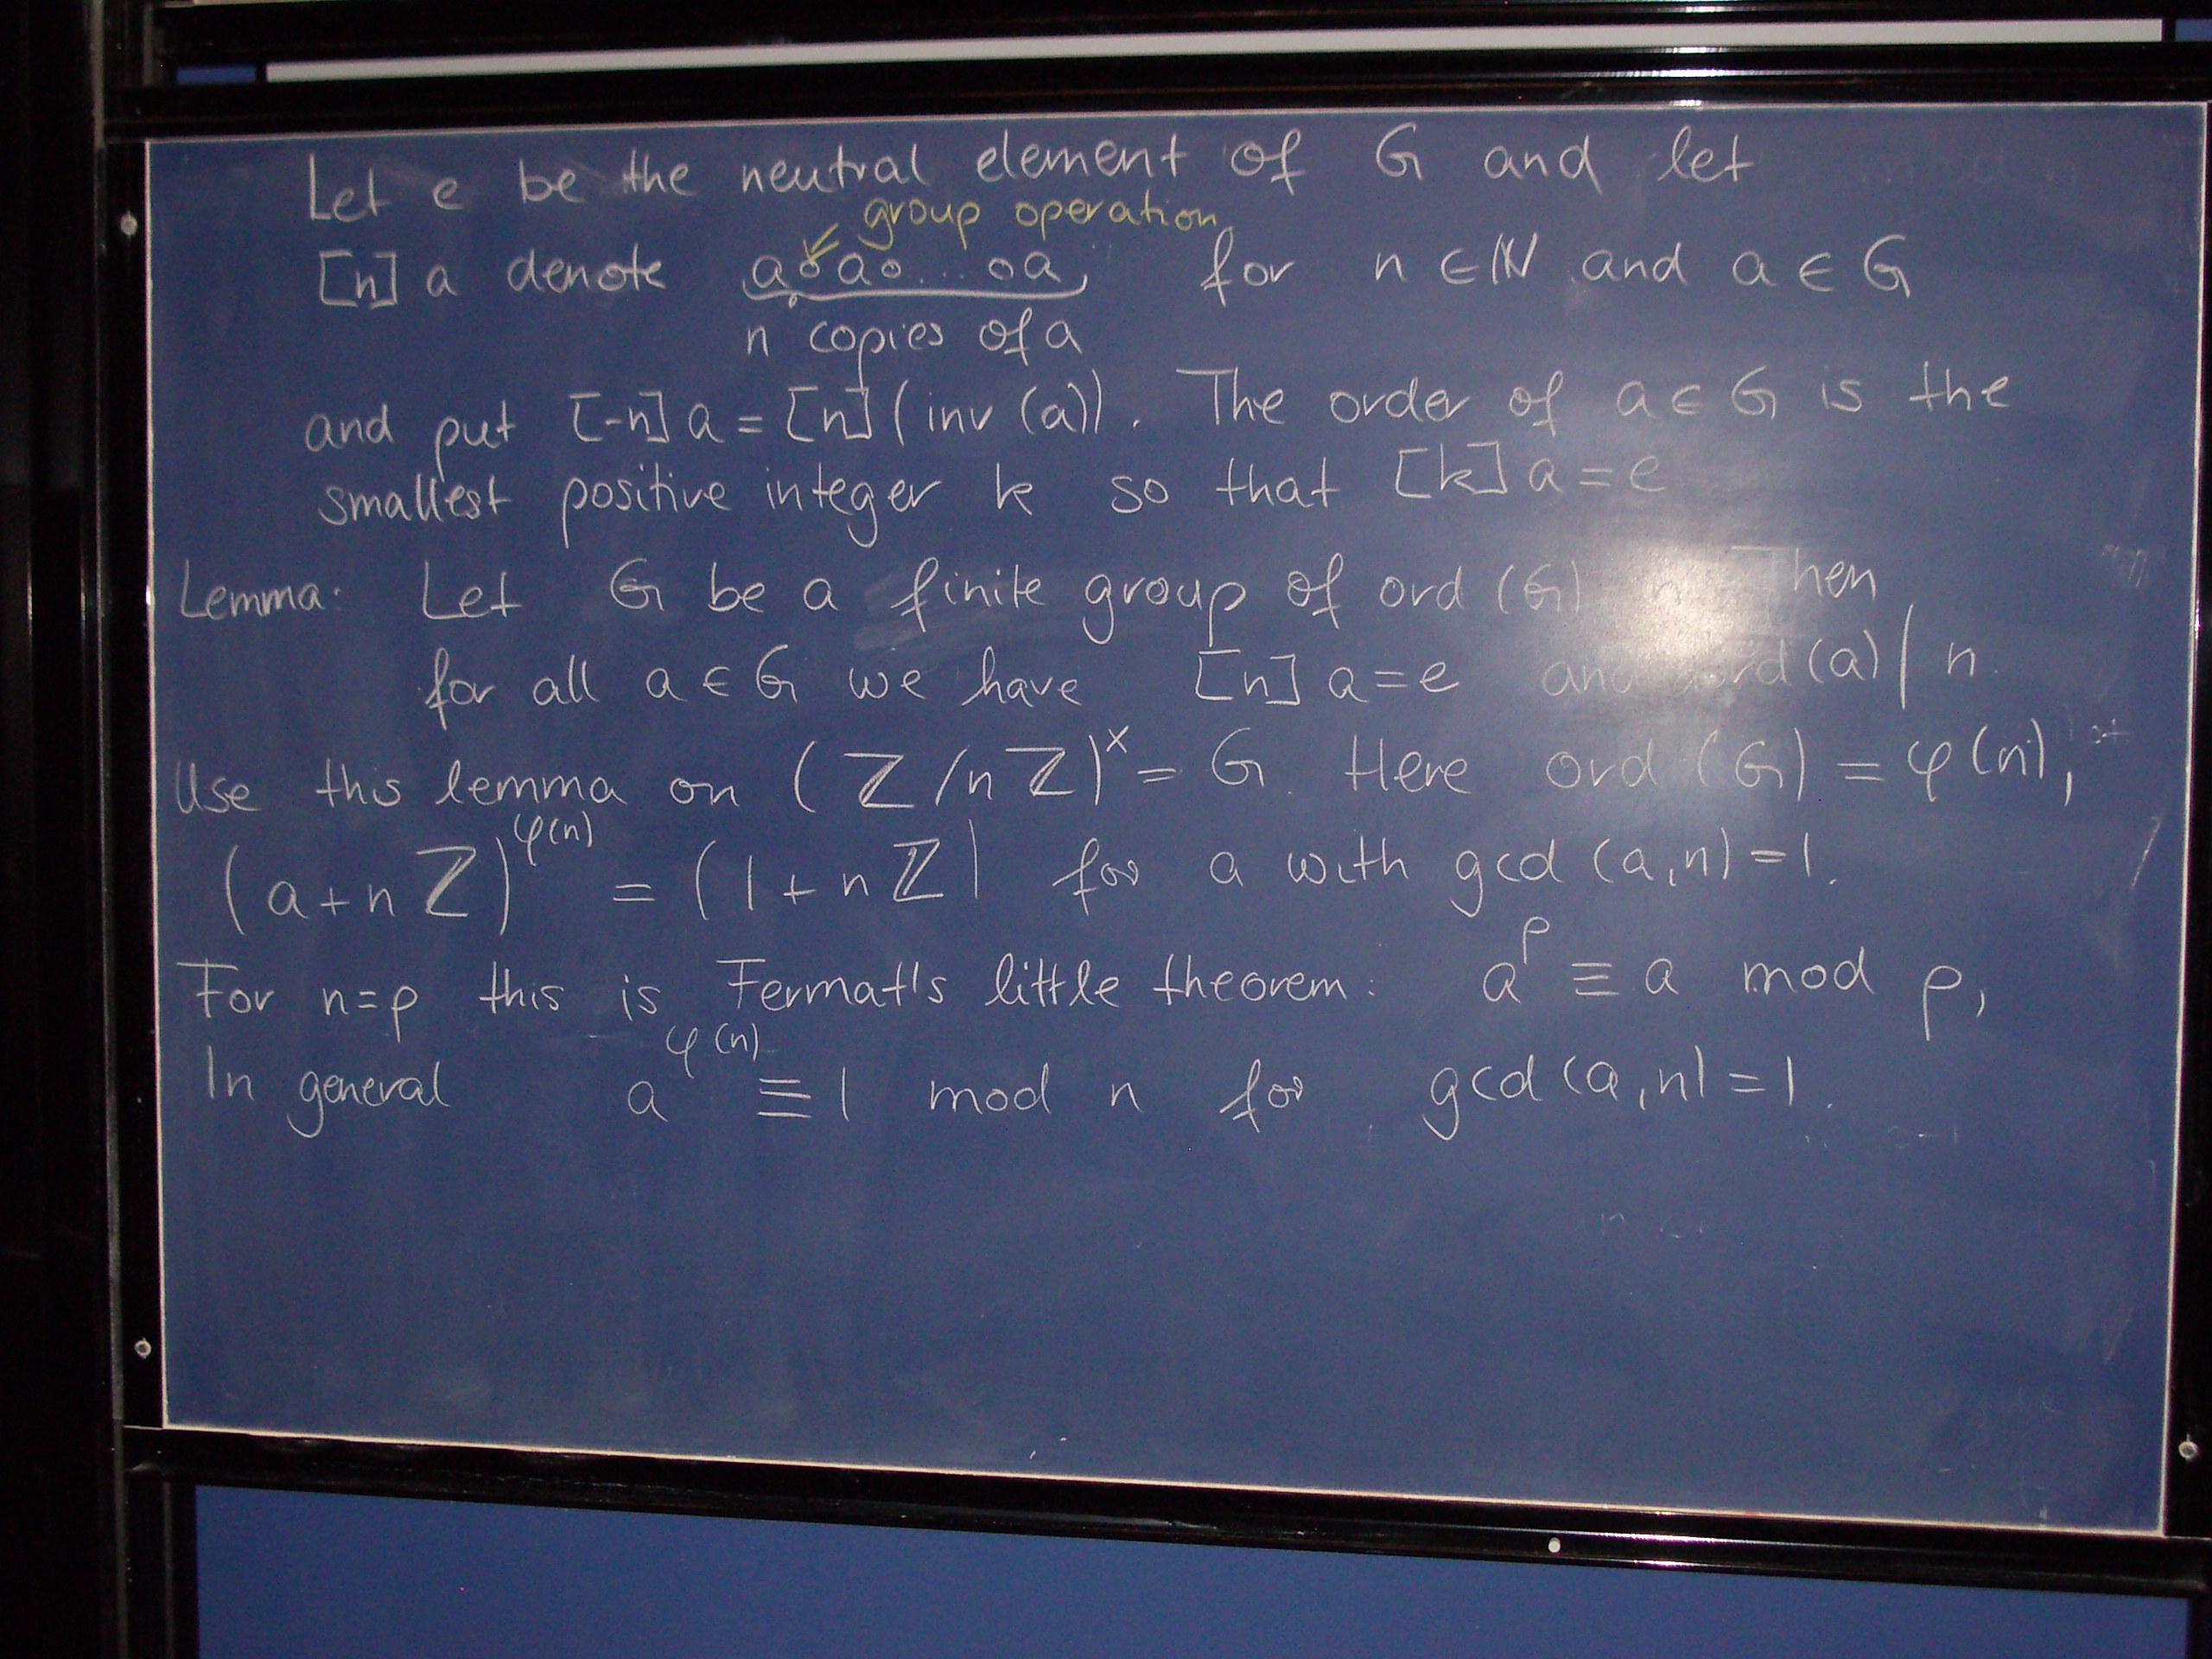 Let e be the neutral element of G and let
group operation
[n] a denote a∘a∘...∘a for n ∈ ℕ and a ∈ G
n copies of a
and put [-n] a = [n] (inv (a)). The order of a ∈ G is the
smallest positive integer k so that [k] a = e
Lemma: Let G be a finite group of ord (G) n. Then
for all a ∈ G we have [n] a = e and ord (a) | n.
Use this lemma on (ℤ/nℤ)^× = G. Here ord (G) = φ(n),
(a+nℤ)^φ(n) = (1+nℤ) for a with gcd (a,n) = 1.
For n=p this is Fermat's little theorem: a^p ≡ a mod p,
In general a^φ(n) ≡ 1 mod n for gcd (a,n) = 1.